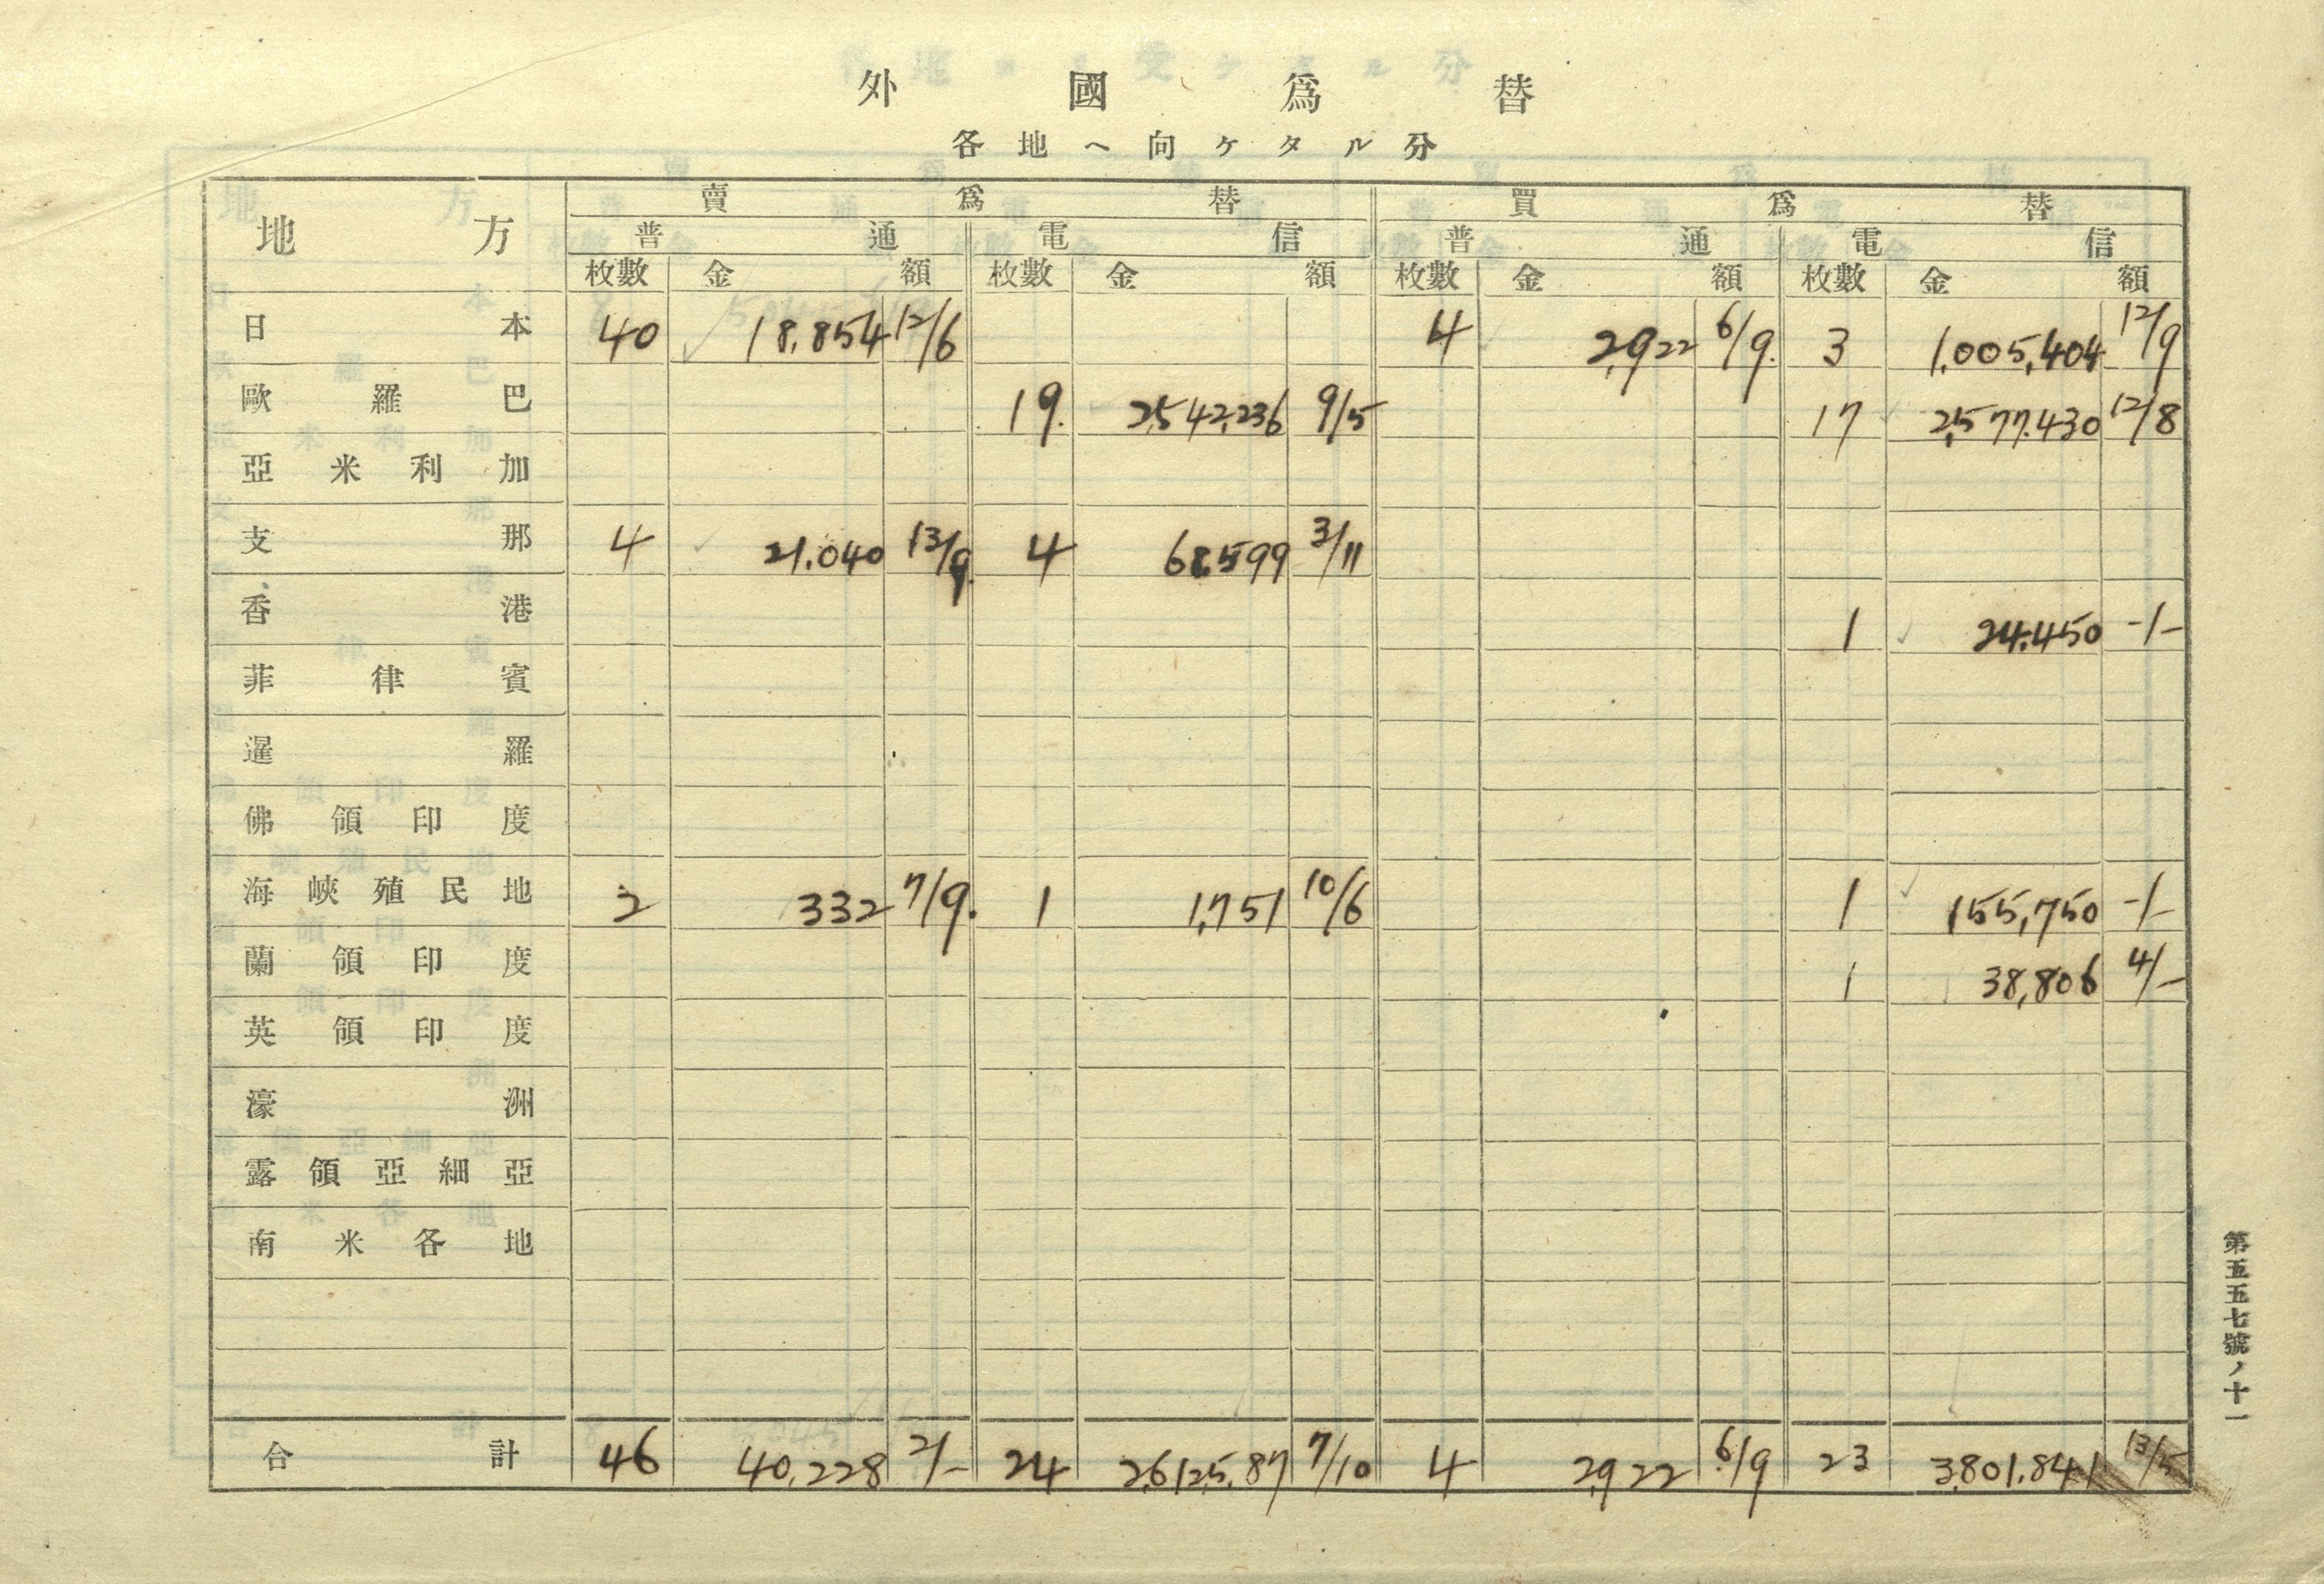 外國爲替
各地ヘ向ケタル分
地方 賣爲替 買爲替
普通 電信 普通 電信
枚數 金額 枚數 金額 枚數 金額 枚數 金額
日本 40 18,854 12/6 4 2,922 6/9 3 1,005,404 12/9
歐羅巴 19 2,542,236 9/5 17 2,577,430 12/8
亞米利加
支那 4 21,040 13/9 4 68,599 3/11
香港 1 24,450 -/-
菲律賓
暹羅
佛領印度
海峽殖民地 2 332 7/9 1 1,751 10/6 1 155,750 -/-
蘭領印度 1 38,806 4/-
英領印度
濠洲
露領亞細亞
南米各地
合計 46 40,228 2/- 24 2,612,587 7/10 4 2,922 6/9 23 3,801,841 13/5
第五五七號ノ十一